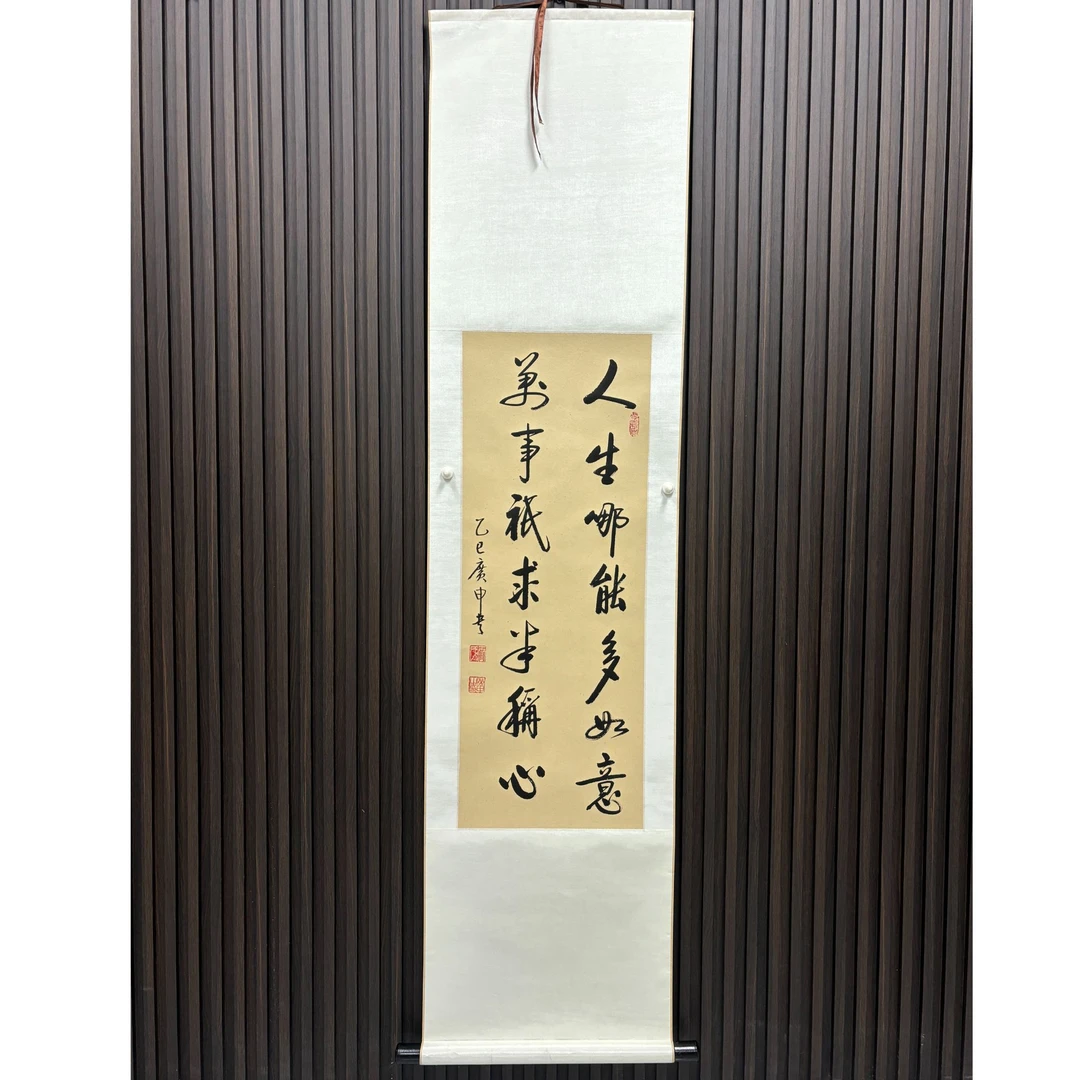 人生哪能多如意
萬事祇求半稱心
乙巳廣申书